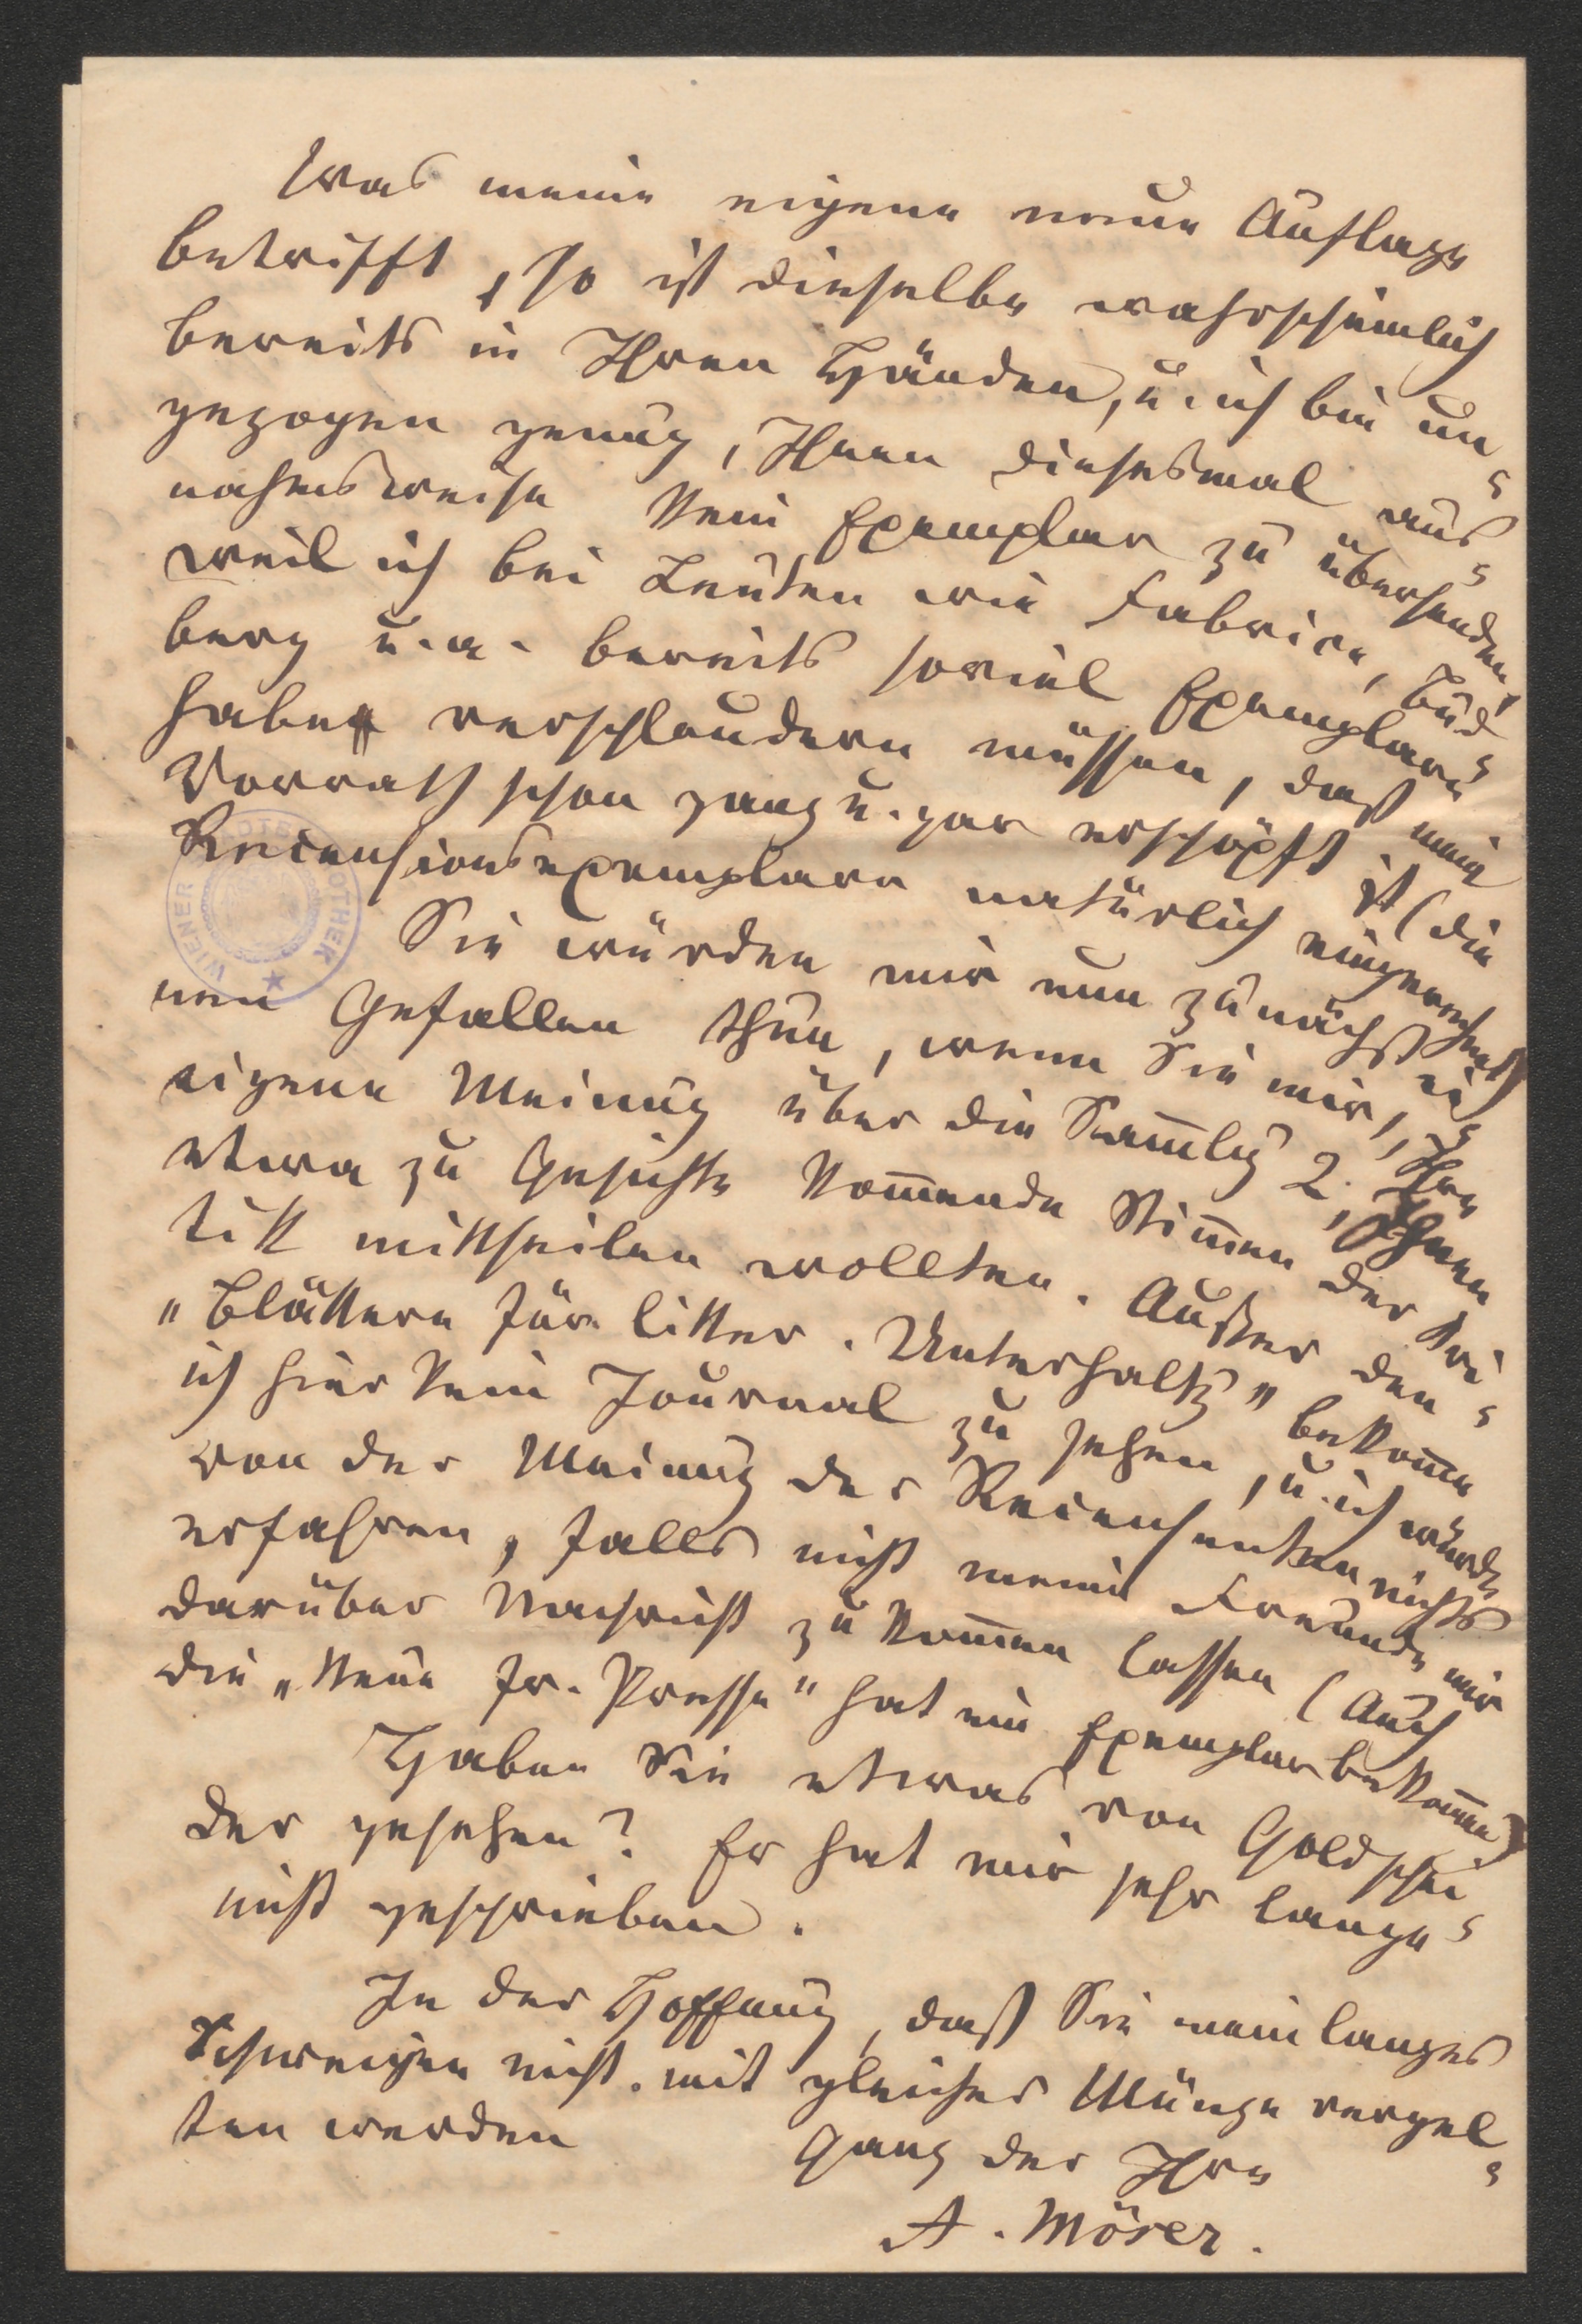 Was meine eigene neue Auflage
betrifft, so ist dieselbe wahrscheinlich
bereits in Ihren Händen, u. ich bin un-
gezogen genug, Ihnen diesesmal aus-
nahmsweise kein Exemplar zu übersenden,
weil ich bei Leuten wie Fabrice, Bud-
berg u. a. bereits soviel Exemplare
habe verschleudern müssen, daß mein
Vorrath schon ganz u. gar erschöpft ist (die
Recensionsexemplare natürlich eingerechnet)
Sie würden mir nun zunächst ei-
nen Gefallen thun, wenn Sie mir, Ihre
eigene Meinung über die Samlg 2., Ihnen
etwa zu Gesichte komende Stimen der Kri-
tik mittheilen wollten. Außer den
„Blättern für litter. Unterhaltg" bekome
ich hier kein Journal zu sehen, u. ich würde
von der Meinung der Recensenten nichts
erfahren, falls nicht meine Freunde mir
darüber Nachricht zu komen lassen (Auch
die „Neue fr. Presse" hat ein Exemplar bekomen)
Haben Sie etwas von Goldschei-
der gesehen? Er hat mir sehr lange
nicht geschrieben.
In der Hoffnung, daß Sie mein langes
Schweigen nicht mit gleicher Münze vergel-
ten werden
Ganz der Ihre
A. Möser.
WIENER STADTBIBLIOTHEK